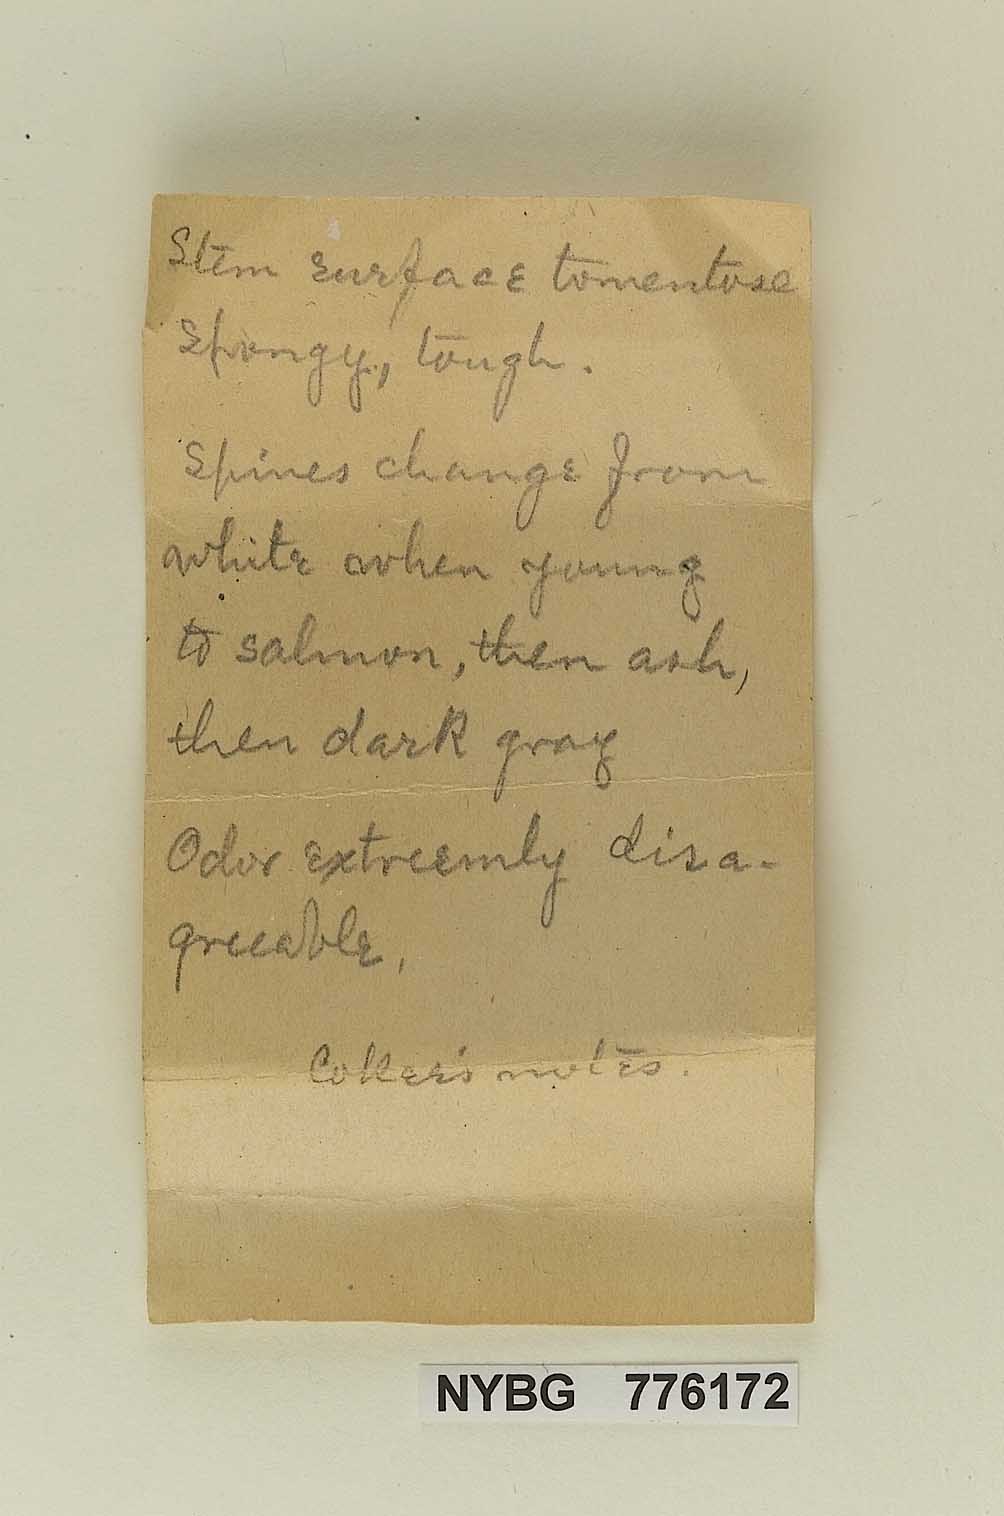 Stem surface tomentose
spongy, tough.
Spines change from
white when young
to salmon, then ash,
then dark gray
Odor extreemly disa-
greeable,
Coker's notes.
NYBG 776172